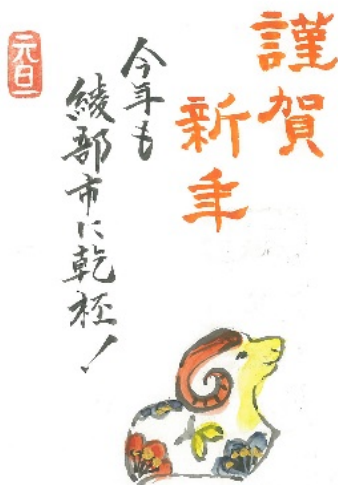 謹賀
新年
今年も
綾部市に乾杯！
元旦